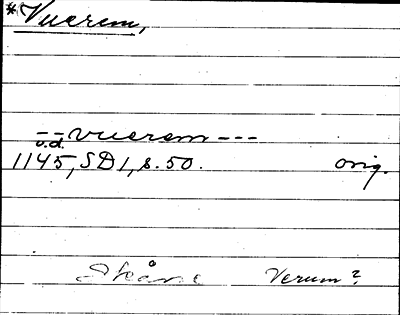 *Vuerem,
-- vuerem ---
u.d.
1145, SD 1, s. 50. orig.
Skåne Verum?